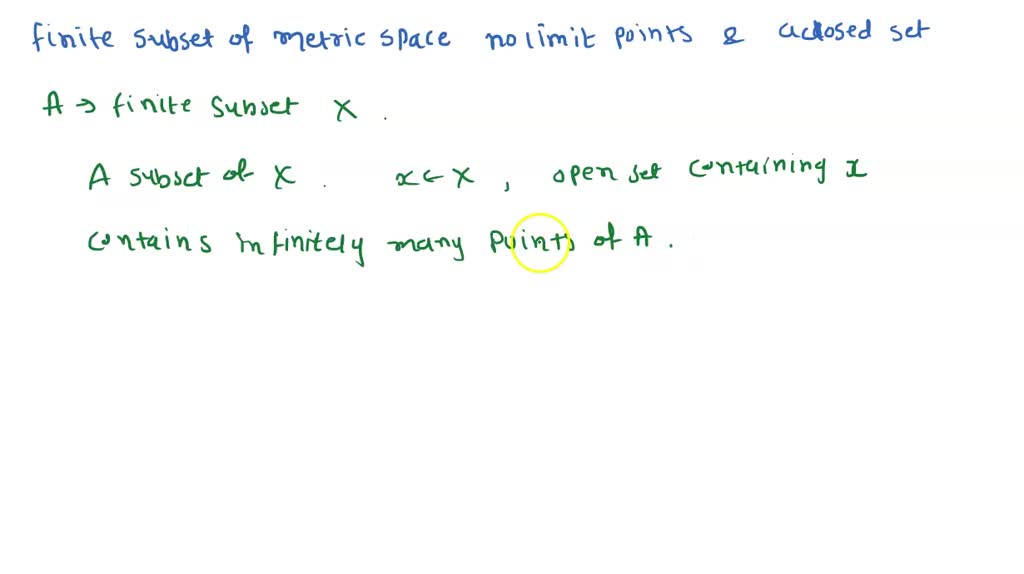 finite subset of metric space no limit points & a closed set
A → finite subset X .
A subset of X . x ← X , open set containing x
contains infinitely many points of A .